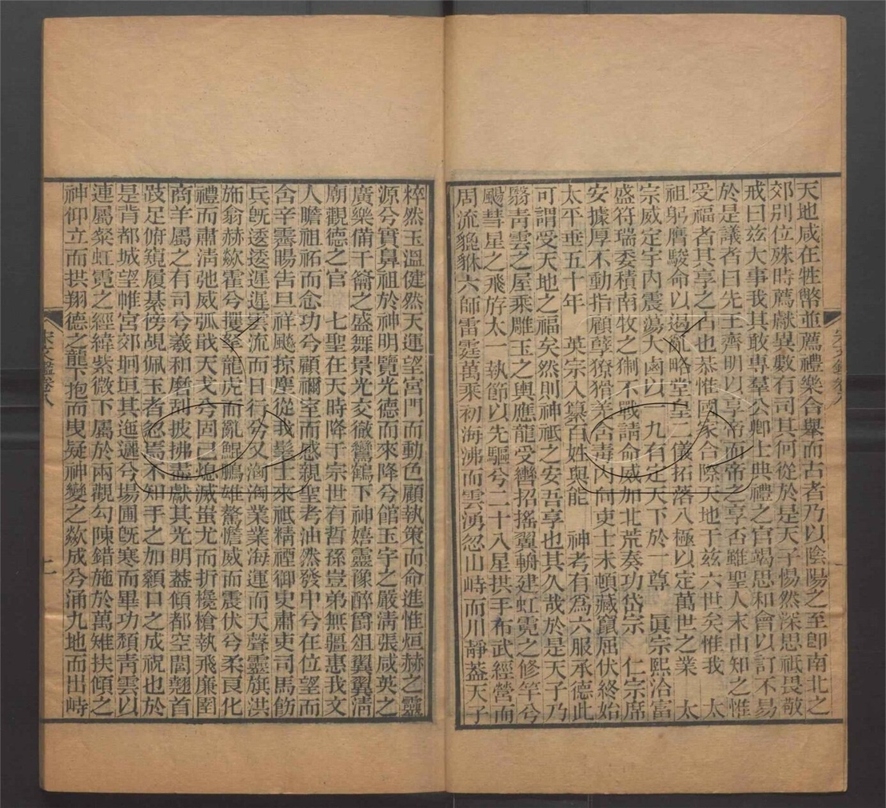 天地咸在牲幣並薦禮樂合舉而古者乃以陰陽之至卽南北之
郊別位殊時薦獻異數有司其何從於是天子惕然深思祇畏敬
戒曰茲大事我其敢專羣公卿士典禮之官竭思和會以訂不易
於是議者曰先王齊明以享帝而帝之享否雖聖人末由知之惟
受福者其享之占也恭惟國家合際天地于兹六世矣惟我 太
祖躬膺駿命以遏亂略堂皇二儀拓落八極以定萬世之業 太
宗威定宇內震蕩大鹵以一九有定天下於一尊 眞宗熙洽富
盛符瑞委積南牧之猘不戰請命威加北荒奏功岱宗 仁宗席
安據厚不動指顧孽獠猾羌古毒內向吏士未頓藏竄屈伏終始
太平垂五十年 英宗入纂百姓與能 神考有爲六服承德此
可謂受天地之福矣然則神祇之安吾享也其久哉於是天子乃
翳青雲之屋乘雕玉之輿應龍受轡招搖翼輈建虹霓之修竿兮
颺彗星之飛斿太一執節以先驅兮二十八星拱手布武經營而
周流貔貅六師雷霆萬乘初海沸而雲湧忽山峙而川靜蓋天子
粹然玉溫健然天運望宮門而動色顧執策而命進惟烜赫之靈
源兮實鼻祖於神明覽光德而來降兮館玉宇之嚴清張咸英之
廣樂備干籥之盛舞景光交徹鸞鶴下神嬉靈豫醉爵俎翼翼清
廟觀德之宮 七聖在天時降于宗世有哲孫豈弟無疆惠我文
人瞻祖祏而念功兮顧禰室而感親聖考油然發中兮在位望而
含辛霽暘告旦祥飇掠塵從我髦士來祇精禋御史肅吏司馬飭
兵旣透透遲遲雲流而日行兮又洶洶業業海運而天聲靈旗洪
施翕赫歘霍兮攫拏龍虎而亂鯤鵬雄驁憺威而震伏兮柔良化
禮而肅清弛威弧戢天戈兮固已熄滅蚩尤而折攙槍執飛廉圉
商羊屬之有司兮羲和磨刮披拂盡獻其光明蓋傾都空閭翹首
跂足俯窺履綦徬覘佩玉者忽焉不知手之加額口之成祝也於
是背都城望帷宮郊坰垣其迤邐兮場圃旣寒而畢功頹青雲以
連屬粲虹霓之經緯紫微下屬於兩觀勾陳錯施於萬雉扶傾之
神仰立而拱翔德之龍下抱而曳疑神變之歘成兮涌九地而出峙